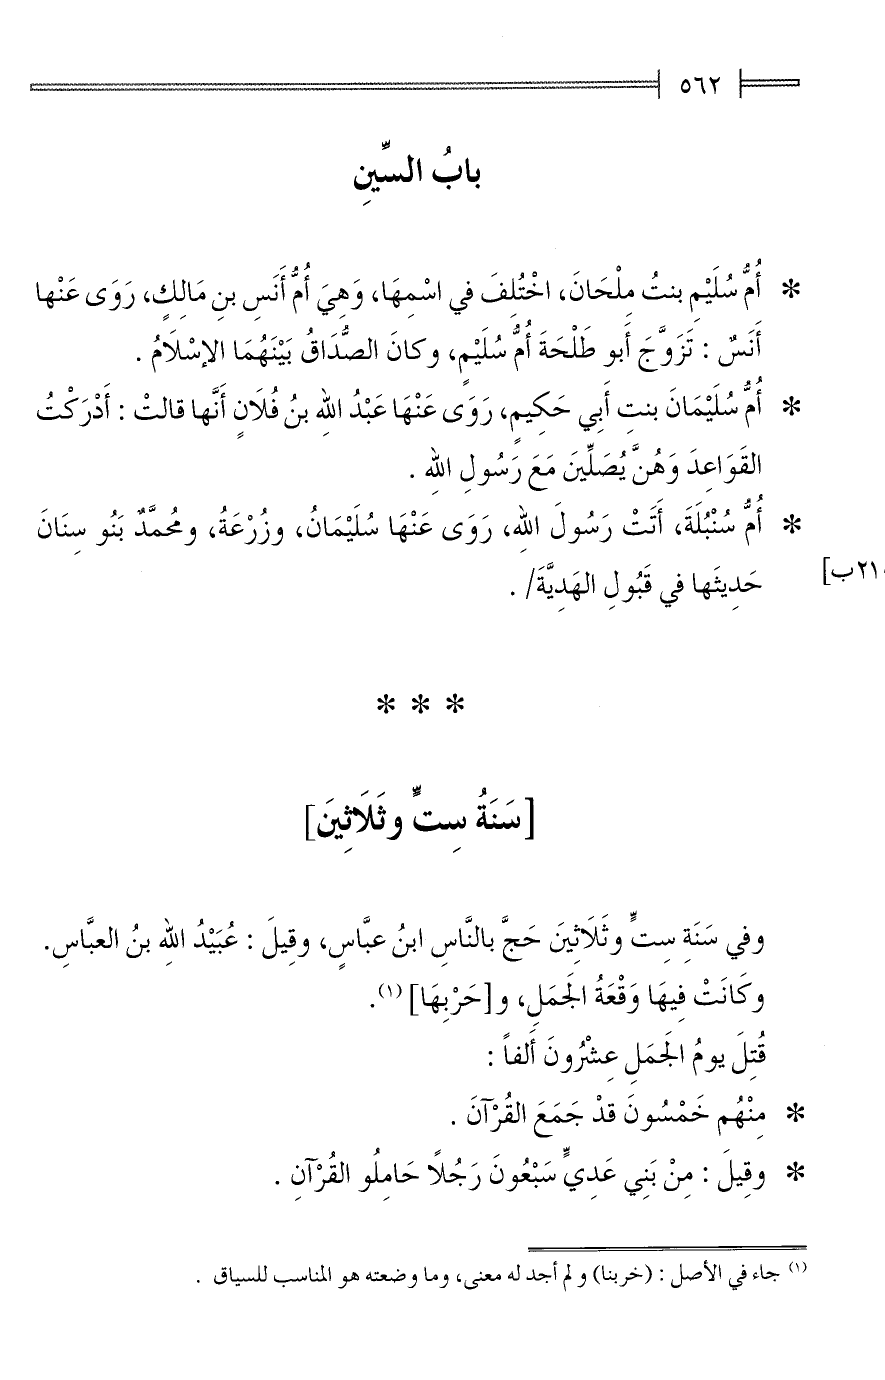 ٥٦٢
بابُ السِّينِ
* أُمُّ سُلَيْمٍ بنتُ مِلْحَانَ، اخْتُلِفَ في اسْمِهَا، وَهِيَ أُمُّ أَنَسِ بنِ مَالِكٍ، رَوَى عَنْها
أَنَسٌ : تَزَوَّجَ أَبو طَلْحَةَ أُمَّ سُلَيْمٍ، وكانَ الصُّدَاقُ بَيْنَهُمَا الإسْلَامُ .
* أُمُّ سُلَيْمَانَ بنتِ أَبي حَكِيمٍ، رَوَى عَنْهَا عَبْدُ اللهِ بنُ فُلَانٍ أَنَّها قالتْ : أَدْرَكْتُ
القَوَاعِدَ وَهُنَّ يُصَلِّينَ مَعَ رَسُولِ اللهِ .
* أُمُّ سُنْبُلَةَ، أَتَتْ رَسُولَ اللهِ، رَوَى عَنْهَا سُلَيْمَانُ، وزُرْعَةُ، ومُحمَّدٌ بَنُو سِنَانَ
حَدِيثَها في قَبُولِ الهَدِيَّةَ/ .
٢١٠ب]
* * *
[سَنَةُ سِتٍّ وثَلَاثِينَ]
وفي سَنَةِ سِتٍّ وثَلَاثِينَ حَجَّ بالنَّاسِ ابنُ عبَّاسٍ، وقِيلَ : عُبَيْدُ اللهِ بنُ العبَّاسِ.
وكَانَتْ فِيهَا وَقْعَةُ الجَملِ، و[حَرْبِهَا] (١).
قُتِلَ يومُ الجَملِ عِشْرُونَ أَلفاً :
* مِنْهُم خَمْسُونَ قدْ جَمَعَ القُرْآنَ .
* وقِيلَ : مِنْ بَنِي عَدِيٍّ سَبْعُونَ رَجُلًا حَامِلُو القُرْآنِ .
(١) جاء في الأصل : (خربنا) ولم أجد له معنى، وما وضعته هو المناسب للسياق .